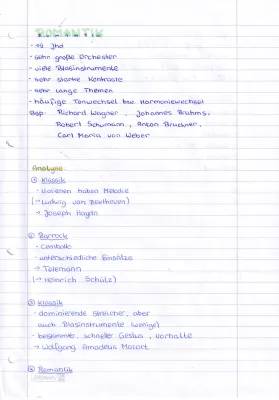 ROMANTIK
- 19 Jhd
- sehr große Orchester
- viele Blasinstrumente
- sehr starke Kontraste
- sehr lange Themen
- häufige Tonwechsel bzw. Harmoniewechsel
Bsp: Richard Wagner, Johannes Brahms,
Robert Schumann, Anton Bruckner,
Carl Maria von Weber
Analyse
① Klassik
- haben Melodie
(→ Ludwig van Beethoven)
→ Joseph Haydn
② Barrock
- Cembalo
- unterschiedliche Einsätze
→ Telemann
(→ Heinrich Schütz)
③ Klassik
- dominierende Streicher, aber
auch Blasinstrumente (wenige)
- bestimmte, schneller Gestus, Vorhalte
→ Wolfgang Amadeus Mozart
④ Romantik